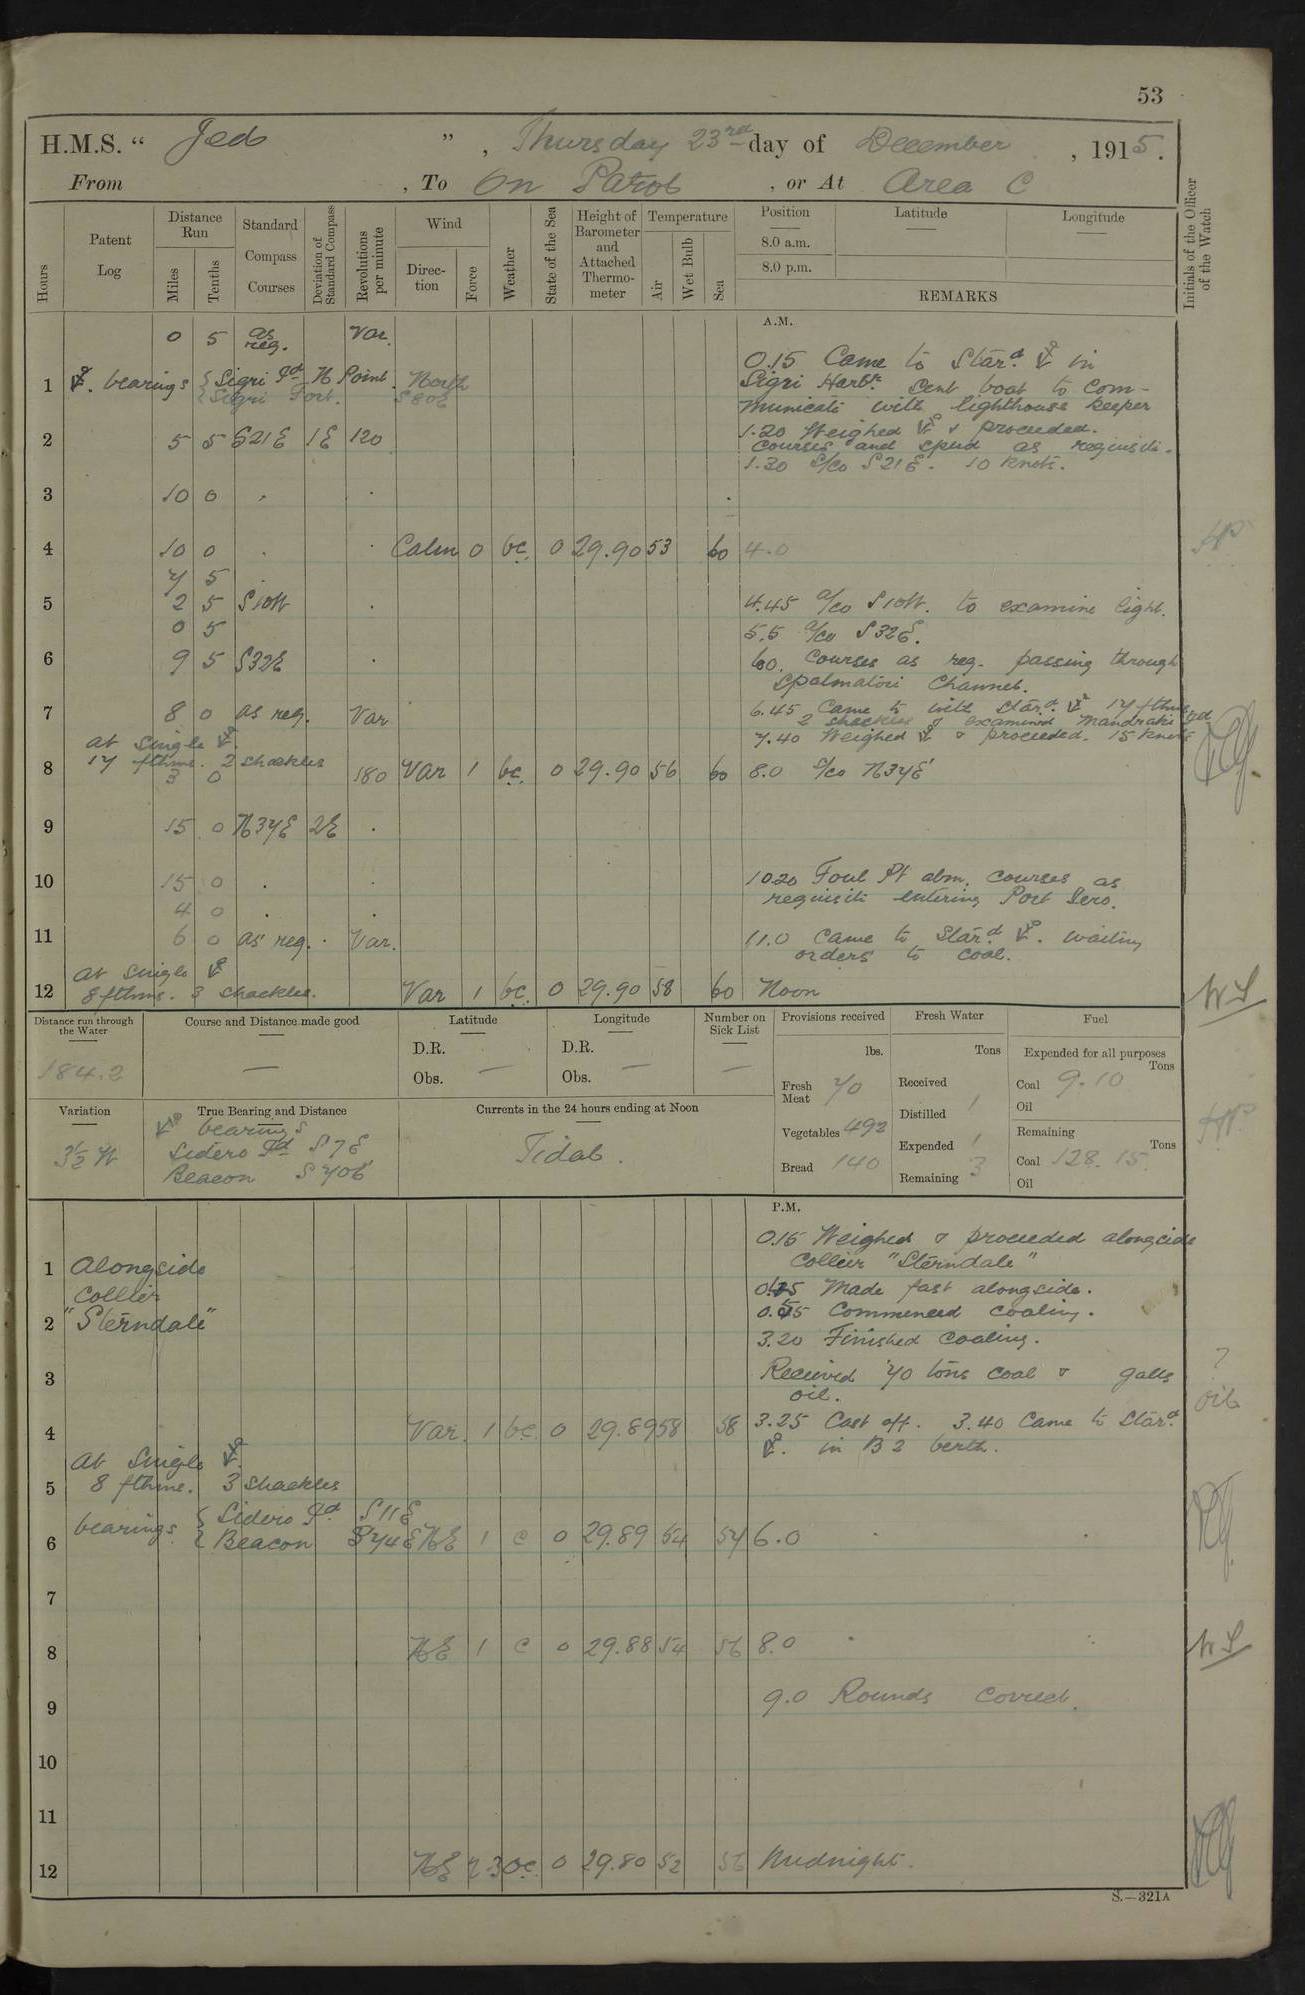 53
H.M.S. “ Jed ” , Thursday 23rd day of December , 1915.
From , To On Patrol , or At Area C
Hours
Patent Log
Distance Run
Miles
Tenths
Standard Compass Courses
Deviation of Standard Compass
Revolutions per minute
Wind
Direction
Force
Weather
State of the Sea
Height of Barometer and Attached Thermometer
Temperature
Air
Wet Bulb
Sea
Position Latitude Longitude
8.0 a.m.
8.0 p.m.
REMARKS
Initials of the Officer of the Watch
A.M.
0 5 as req. Var.
0.15 Came to Stard ⚓ in
1 ⚓. bearings { Sigri Id N Point. North
{ Sigri Fort. S80E
Sigri Harbr. Sent boat to com-
municate with lighthouse keeper
1.20 Weighed ⚓ & proceeded.
2 5 5 S21E 1E 120
Courses and speed as requisite.
1.30 S/Co S21E. 10 knots.
3 10 0 . .
4 10 0 . . Calm 0 bc. 0 29.90 53 60 4.0
7 5
5 2 5 S10W . 4.45 a/co S10W. to examine light.
0 5 5.5 a/co S32E.
6 9 5 S32E . 6.0. Courses as req. passing through
Spalmatori Channel.
7 8 0 as req. Var 6.45 Came to with Stard. ⚓ 17 fthms
2 shackles & examined Mandraki
at single ⚓. 7.40 Weighed ⚓ & proceeded. 15 knots
17 fthms. 2 shackles
8 3 0 180 Var 1 bc. 0 29.90 56 60 8.0 S/co N37E
9 15 0 N37E 2E .
10 15 0 . . 10.20 Foul Pt abm. Courses as
requisite entering Port Iero.
4 0 . .
11 6 0 as req. . Var. 11.0 Came to Stard ⚓. waiting
orders to coal.
at single ⚓
12 8 fthms. 3 shackles. Var 1 bc. 0 29.90 58 60 Noon
WS
Distance run through the Water
184.2
Course and Distance made good
—
Latitude
D.R.
Obs. —
Longitude
D.R.
Obs. —
Number on Sick List
—
Provisions received
lbs.
Fresh Meat 70
Vegetables 492
Bread 140
Fresh Water
Tons
Received
Distilled 1
Expended 1
Remaining 3
Fuel
Expended for all purposes
Tons
Coal 9.10
Oil
Remaining
Tons
Coal 128.15.
Oil
Variation
3½ W
True Bearing and Distance
⚓ bearings
Sidero Id S7E
Beacon S70E
Currents in the 24 hours ending at Noon
Tidal.
P.M.
0.15 Weighed & proceeded alongside
Collier "Sterndale"
1 Alongside
Collier
2 "Sterndale"
Made fast alongside.
Commenced coaling.
3.20 Finished coaling.
3 Received 70 tons coal & galls ?
oil. oil
4 Var. 1 bc. 0 29.89 58 58 3.25 Cast off. 3.40 Came to Stard.
⚓. in B2 berth.
At single ⚓.
5 8 fthms. 3 shackles
bearings { Sidero Id. S11E
6 { Beacon S74E NE 1 c 0 29.89 54 57 6.0
7
8 NE 1 c 0 29.88 54 56 8.0
WS
9 9.0 Rounds Correct.
10
11
12 NE 2.3 bc. 0 29.80 52 56 Midnight.
S.—321A